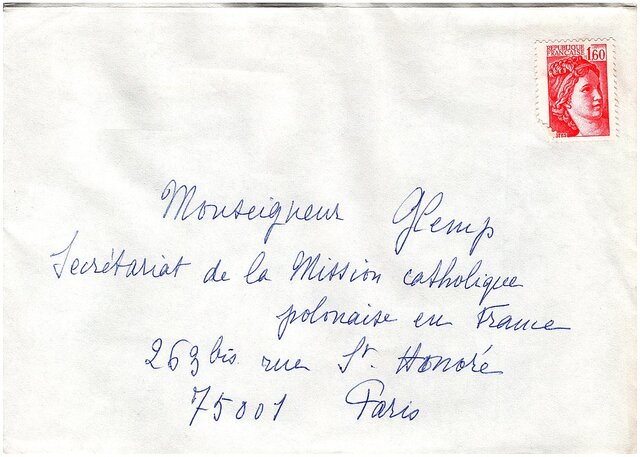 REPUBLIQUE
FRANÇAISE 1,60
Monseigneur Glemp
Secrétariat de la Mission catholique
polonaise en France
263 bis rue St. Honoré
75001 Paris